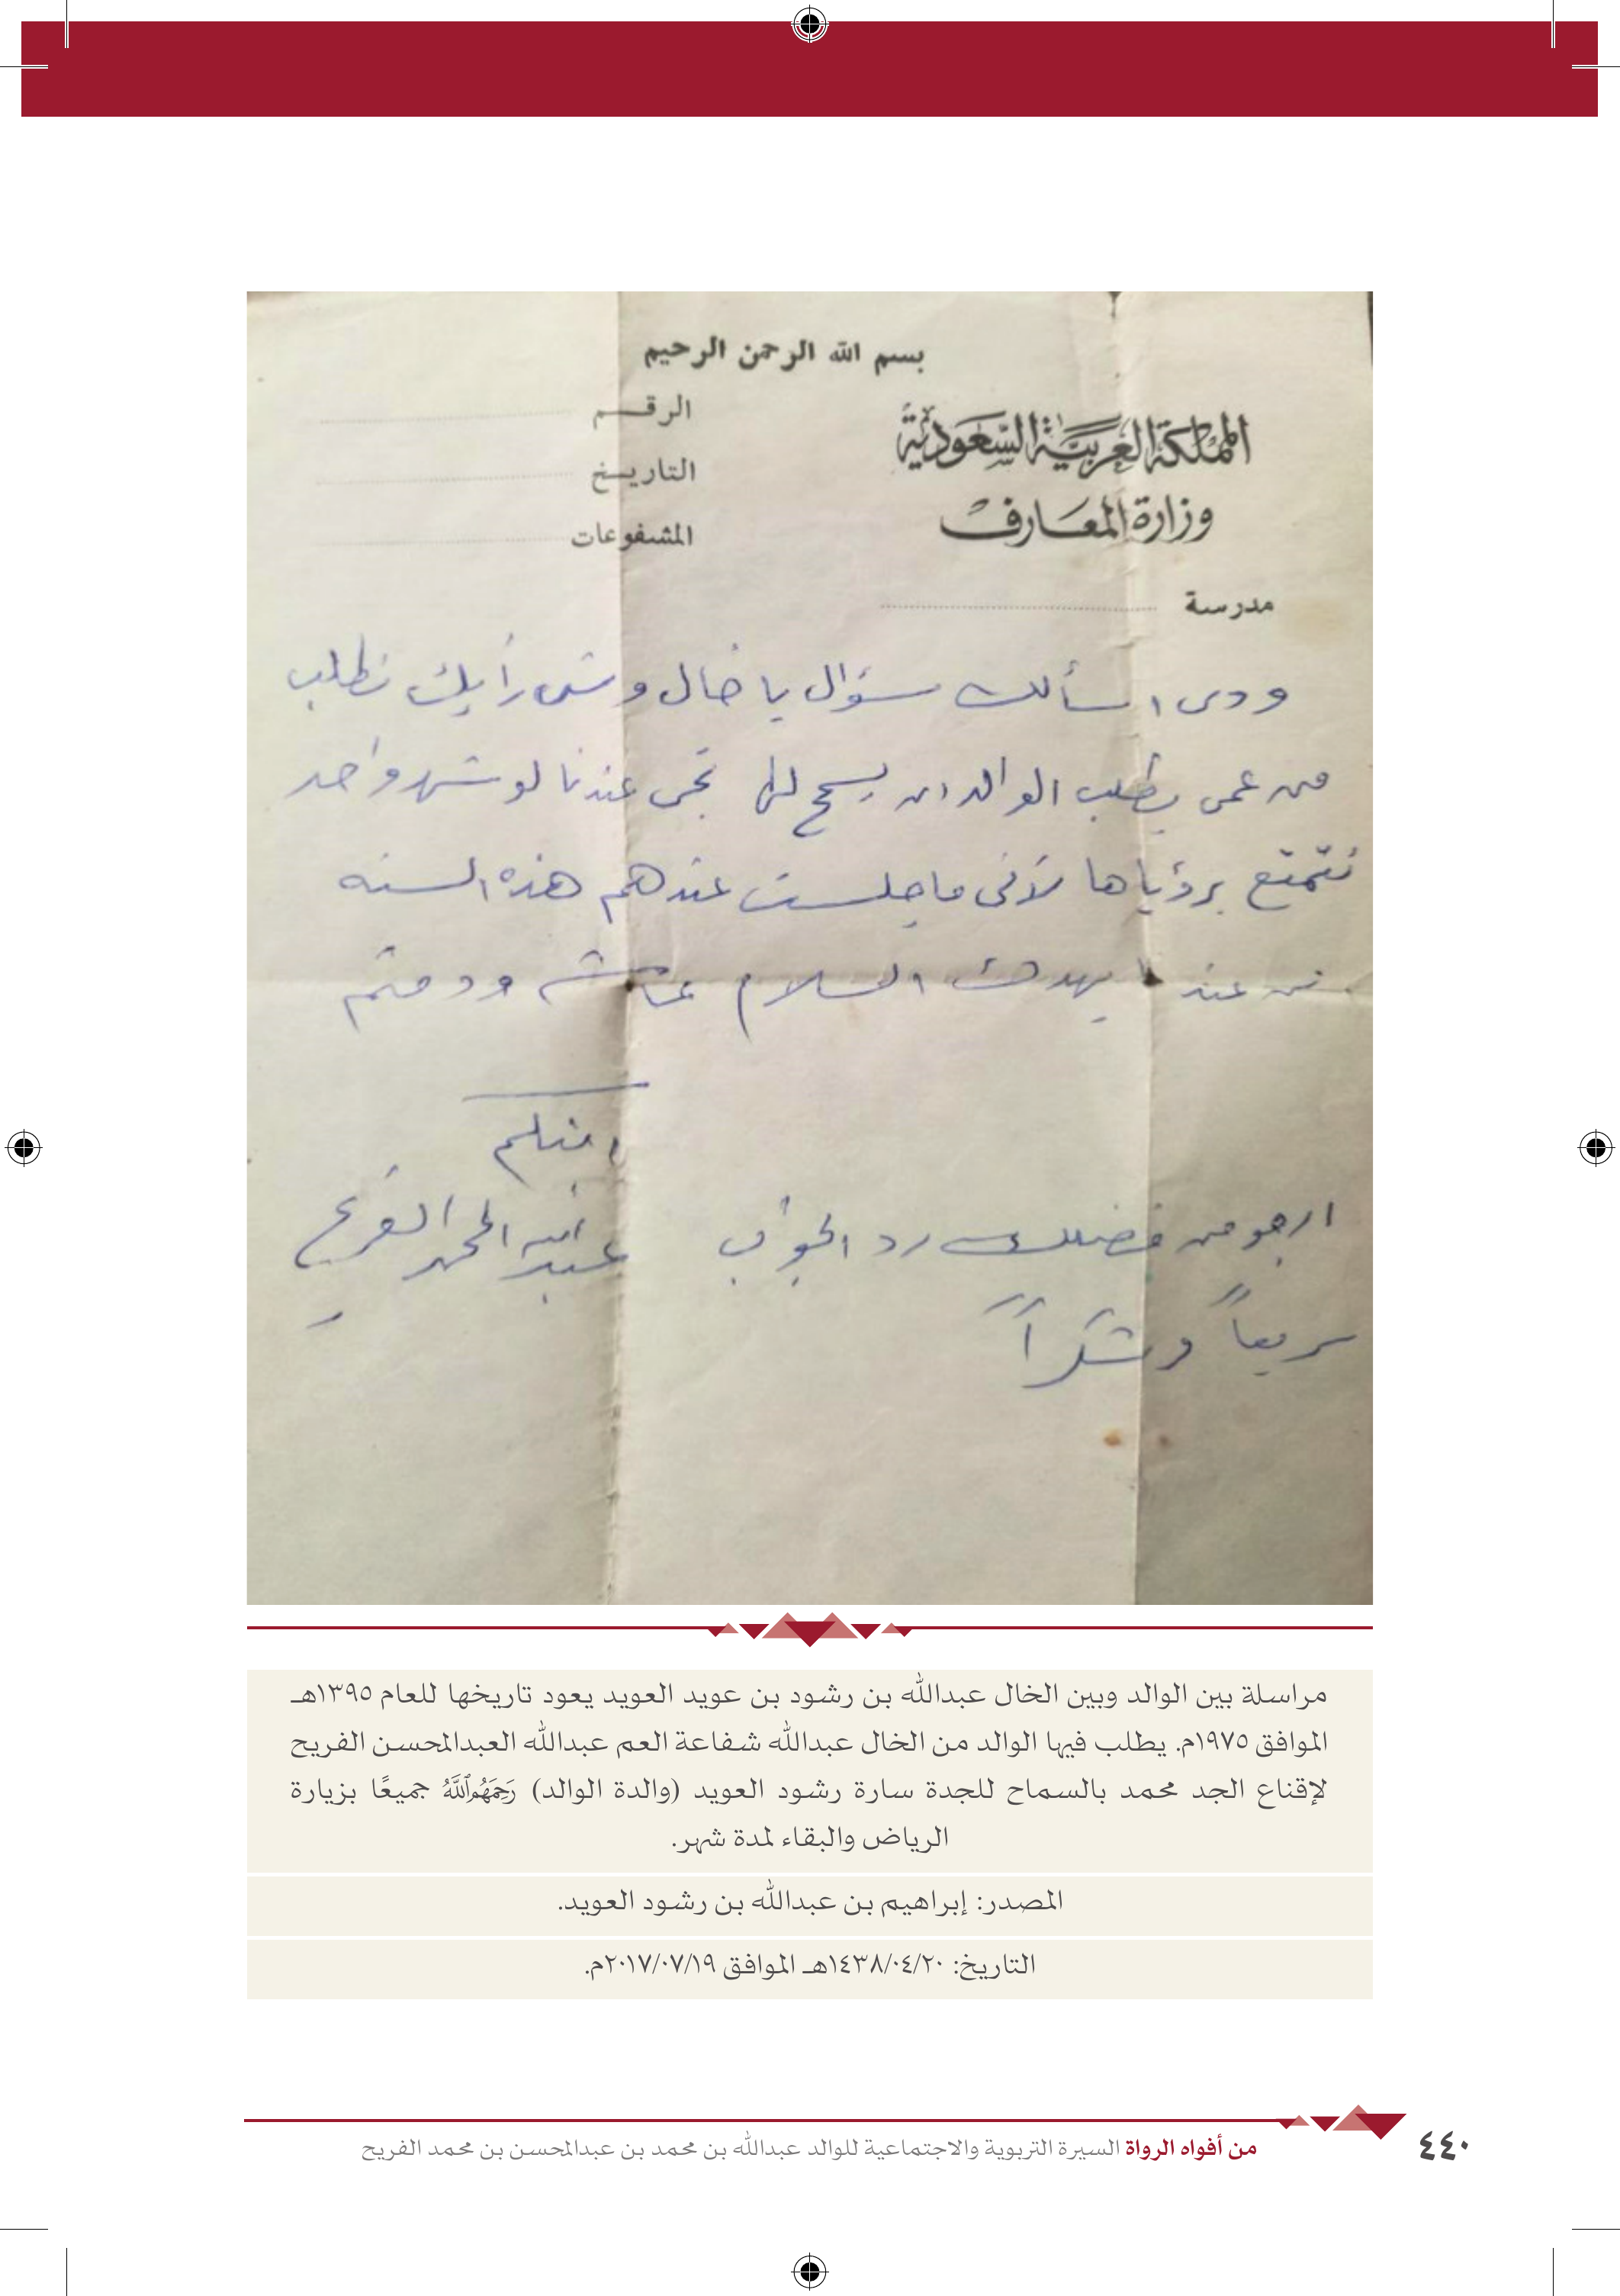 بسم الله الرحمن الرحيم
المملكة العربية السعودية
وزارة المعارف
مدرسة
الرقم
التاريخ
المشفوعات
ودي اسألك سؤال يا خال وش رأيك نطلب
من عمي يطلب الوالد ان يسمح لها تجي عندنا لو شهر واحد
نتمتع برؤياها لأني ما جلست عندهم هذه السنه
من عندنا يهدك السلام عائشه ودمتم
ابنكم
عبدالله المحمد الفريح
ارجو من فضلك رد الجواب
سريعاً وشكراً
مراسلة بين الوالد وبين الخال عبدالله بن رشود بن عويد العويد يعود تاريخها للعام ١٣٩٥هـ
الموافق ١٩٧٥م. يطلب فيها الوالد من الخال عبدالله شفاعة العم عبدالله العبدالمحسن الفريح
لإقناع الجد محمد بالسماح للجدة سارة رشود العويد (والدة الوالد) رَحِمَهُمُ ٱللَّهُ جميعًا بزيارة
الرياض والبقاء لمدة شهر.
المصدر: إبراهيم بن عبدالله بن رشود العويد.
التاريخ: ١٤٣٨/٠٤/٢٠هـ الموافق ٢٠١٧/٠٧/١٩م.
من أفواه الرواة السيرة التربوية والاجتماعية للوالد عبدالله بن محمد بن عبدالمحسن بن محمد الفريح
٤٤٠